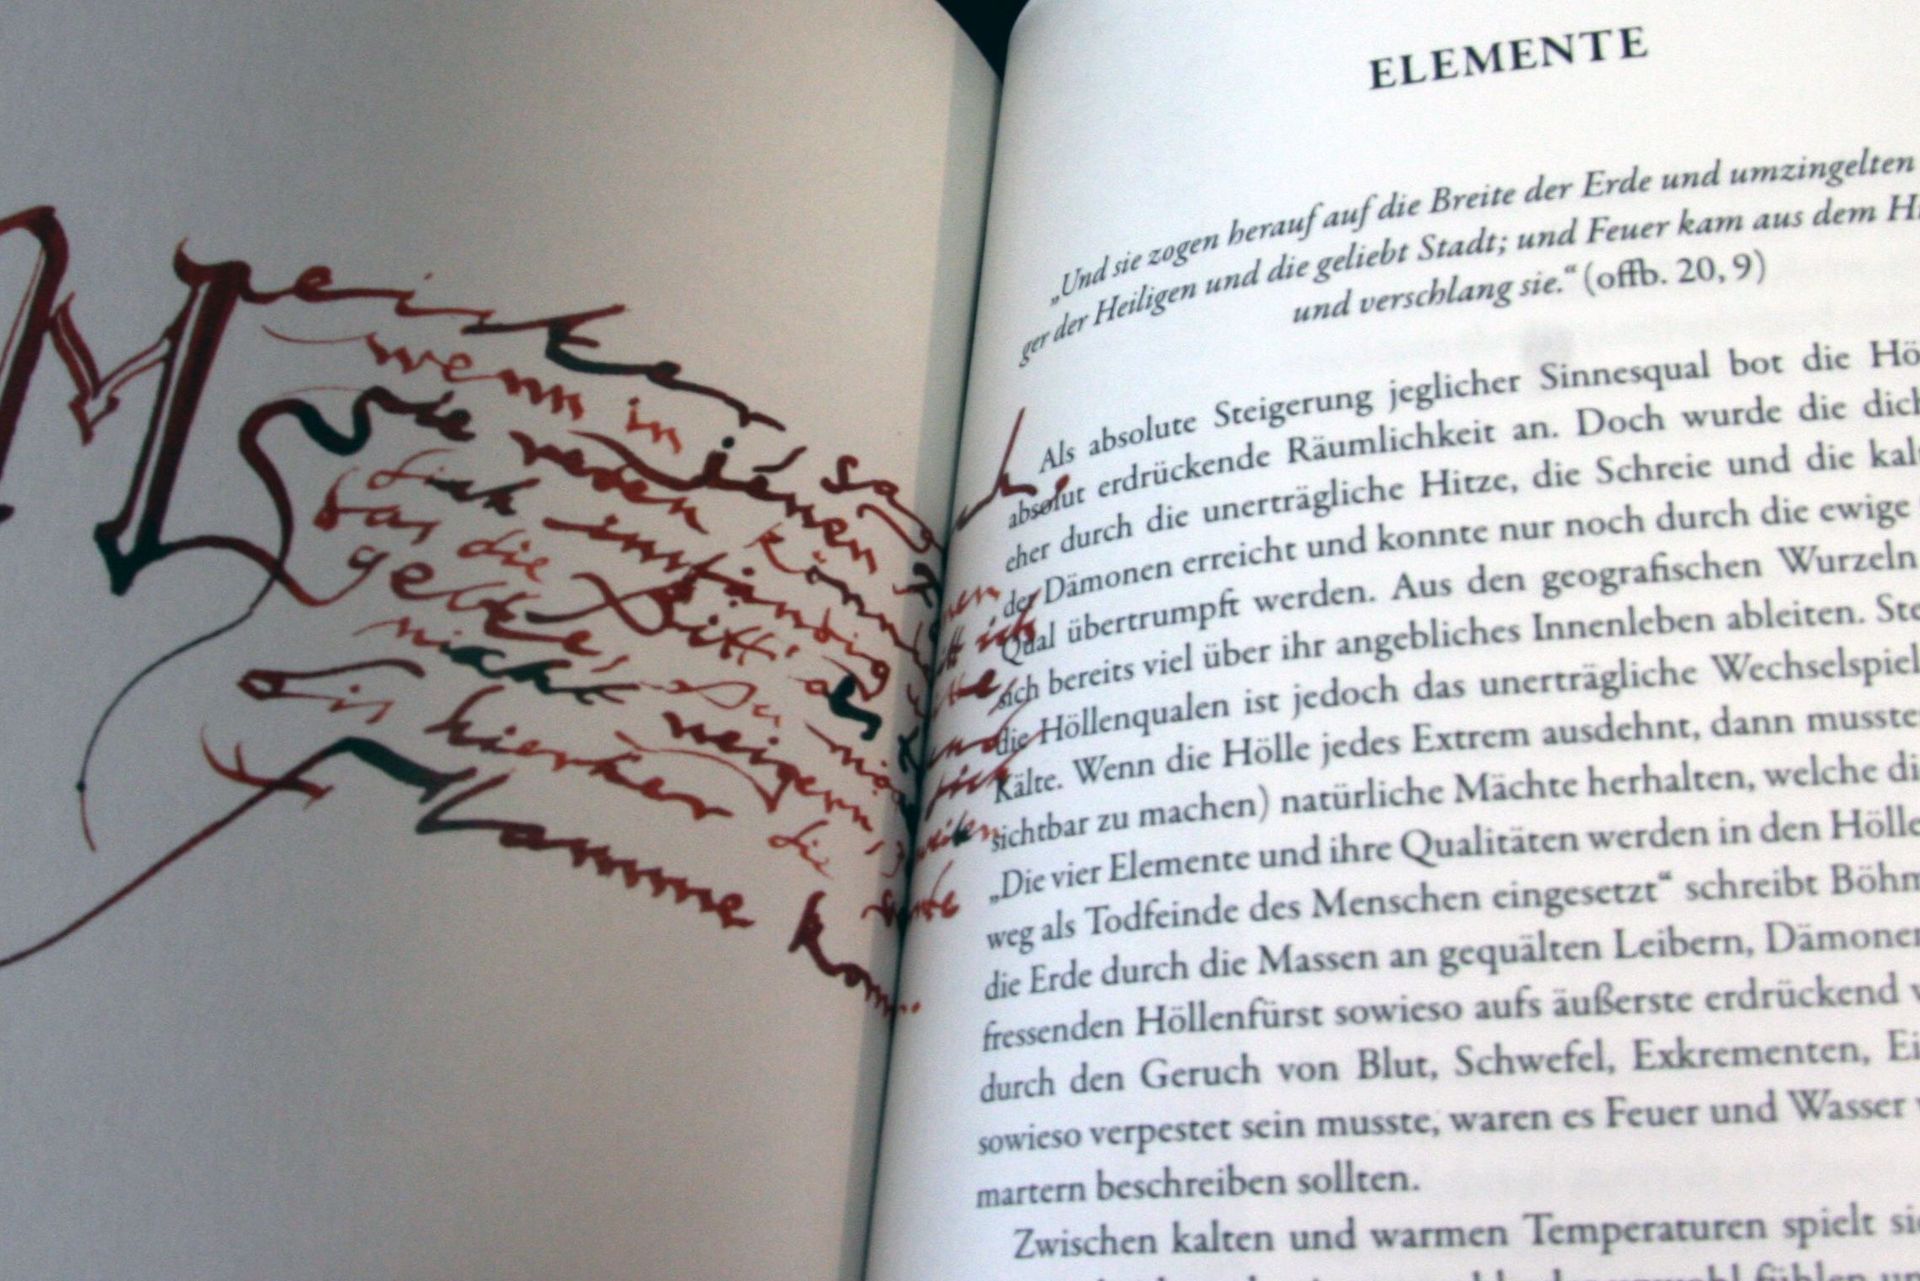 Meister, sag
wenn in
die reden können
dich inständig
das die Bitt'
gelte,
nicht zu weigern,
bis hierher die
Flamme kom
ELEMENTE
„Und sie zogen herauf auf die Breite der Erde und umzingelten
ger der Heiligen und die geliebt Stadt; und Feuer kam aus dem Hi
und verschlang sie.“ (offb. 20, 9)
Als absolute Steigerung jeglicher Sinnesqual bot die Hö
absolut erdrückende Räumlichkeit an. Doch wurde die dich
eher durch die unerträgliche Hitze, die Schreie und die kal
der Dämonen erreicht und konnte nur noch durch die ewige
Qual übertrumpft werden. Aus den geografischen Wurzeln
sich bereits viel über ihr angebliches Innenleben ableiten. Ste
die Höllenqualen ist jedoch das unerträgliche Wechselspiel
Kälte. Wenn die Hölle jedes Extrem ausdehnt, dann musste
sichtbar zu machen) natürliche Mächte herhalten, welche di
„Die vier Elemente und ihre Qualitäten werden in den Hölle
weg als Todfeinde des Menschen eingesetzt“ schreibt Böhm
die Erde durch die Massen an gequälten Leibern, Dämonen
fressenden Höllenfürst sowieso aufs äußerste erdrückend w
durch den Geruch von Blut, Schwefel, Exkrementen, Ei
sowieso verpestet sein musste, waren es Feuer und Wasser
martern beschreiben sollten.
Zwischen kalten und warmen Temperaturen spielt si